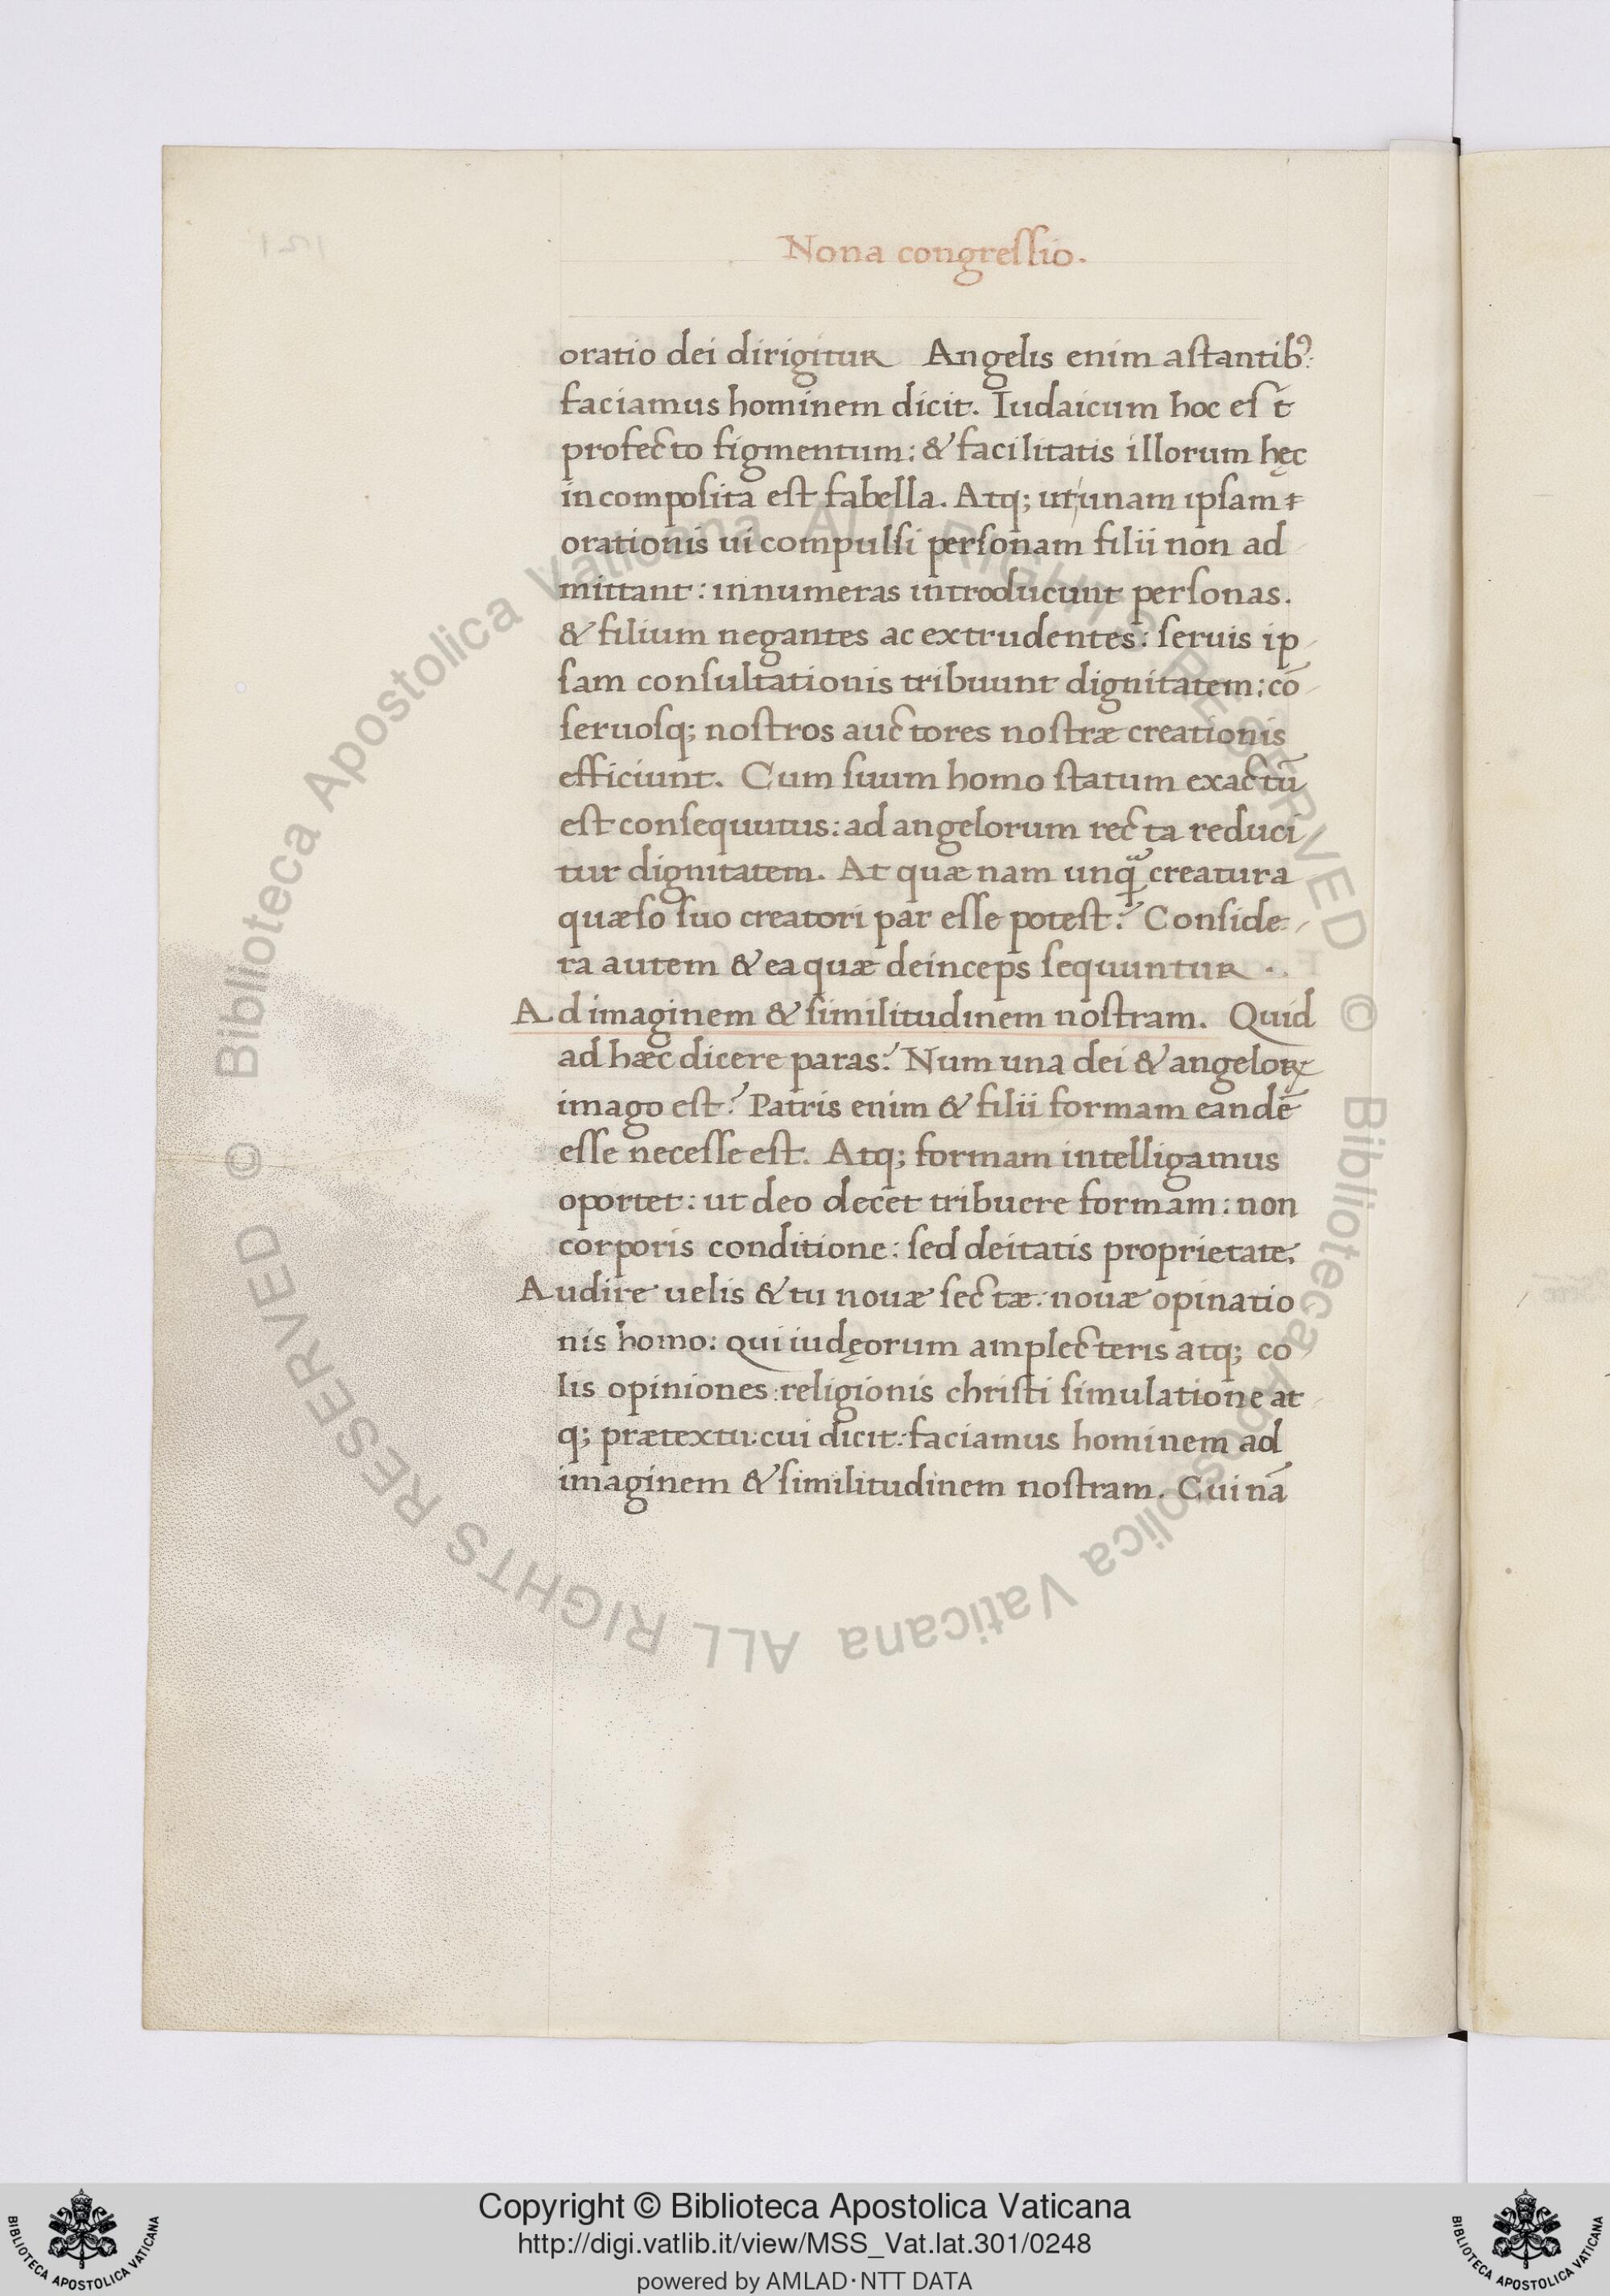 Nona congreſſio.
oratio dei dirigitur Angelis enim aſtantibꝰ:
faciamus hominem dicit. Iudaicum hoc eſt
profecto figmentum: & facilitatis illorum hęc
incompoſita eſt fabella. Atq; ut unam ipſam
orationis ui compulſi perſonam filii non ad
mittant: innumeras introducunt perſonas.
& filium negantes ac extrudentes: ſeruis ip
ſam conſultationis tribuunt dignitatem: cō
ſeruoſq; noſtros auctores noſtræ creationis
efficiunt. Cum ſuum homo ſtatum exactū
eſt conſequutus: ad angelorum recta reduci
tur dignitatem. At quæ nam unq̃ creatura
quæſo ſuo creatori par eſſe poteſt? Conſide
ra autem & ea quæ deinceps ſequuntur.
Ad imaginem & ſimilitudinem noſtram. Quid
ad hæc dicere paras? Num una dei & angeloꝝ
imago eſt? Patris enim & filii formam eandē
eſſe neceſſe eſt. Atq; formam intelligamus
oportet: ut deo decet tribuere formam: non
corporis conditione: ſed deitatis proprietate.
Audire uelis & tu nouæ ſectæ: nouæ opinatio
nis homo: qui iudęorum amplecteris atq; co
lis opiniones: religionis chriſti ſimulatione at
q; prætextu: cui dicit: faciamus hominem ad
imaginem & ſimilitudinem noſtram. Cui nā
© Biblioteca Apostolica Vaticana ALL RIGHTS RESERVED © Biblioteca Apostolica Vaticana ALL RIGHTS RESERVED
Copyright © Biblioteca Apostolica Vaticana
http://digi.vatlib.it/view/MSS_Vat.lat.301/0248
powered by AMLAD·NTT DATA
BIBLIOTECA APOSTOLICA VATICANA
BIBLIOTECA APOSTOLICA VATICANA